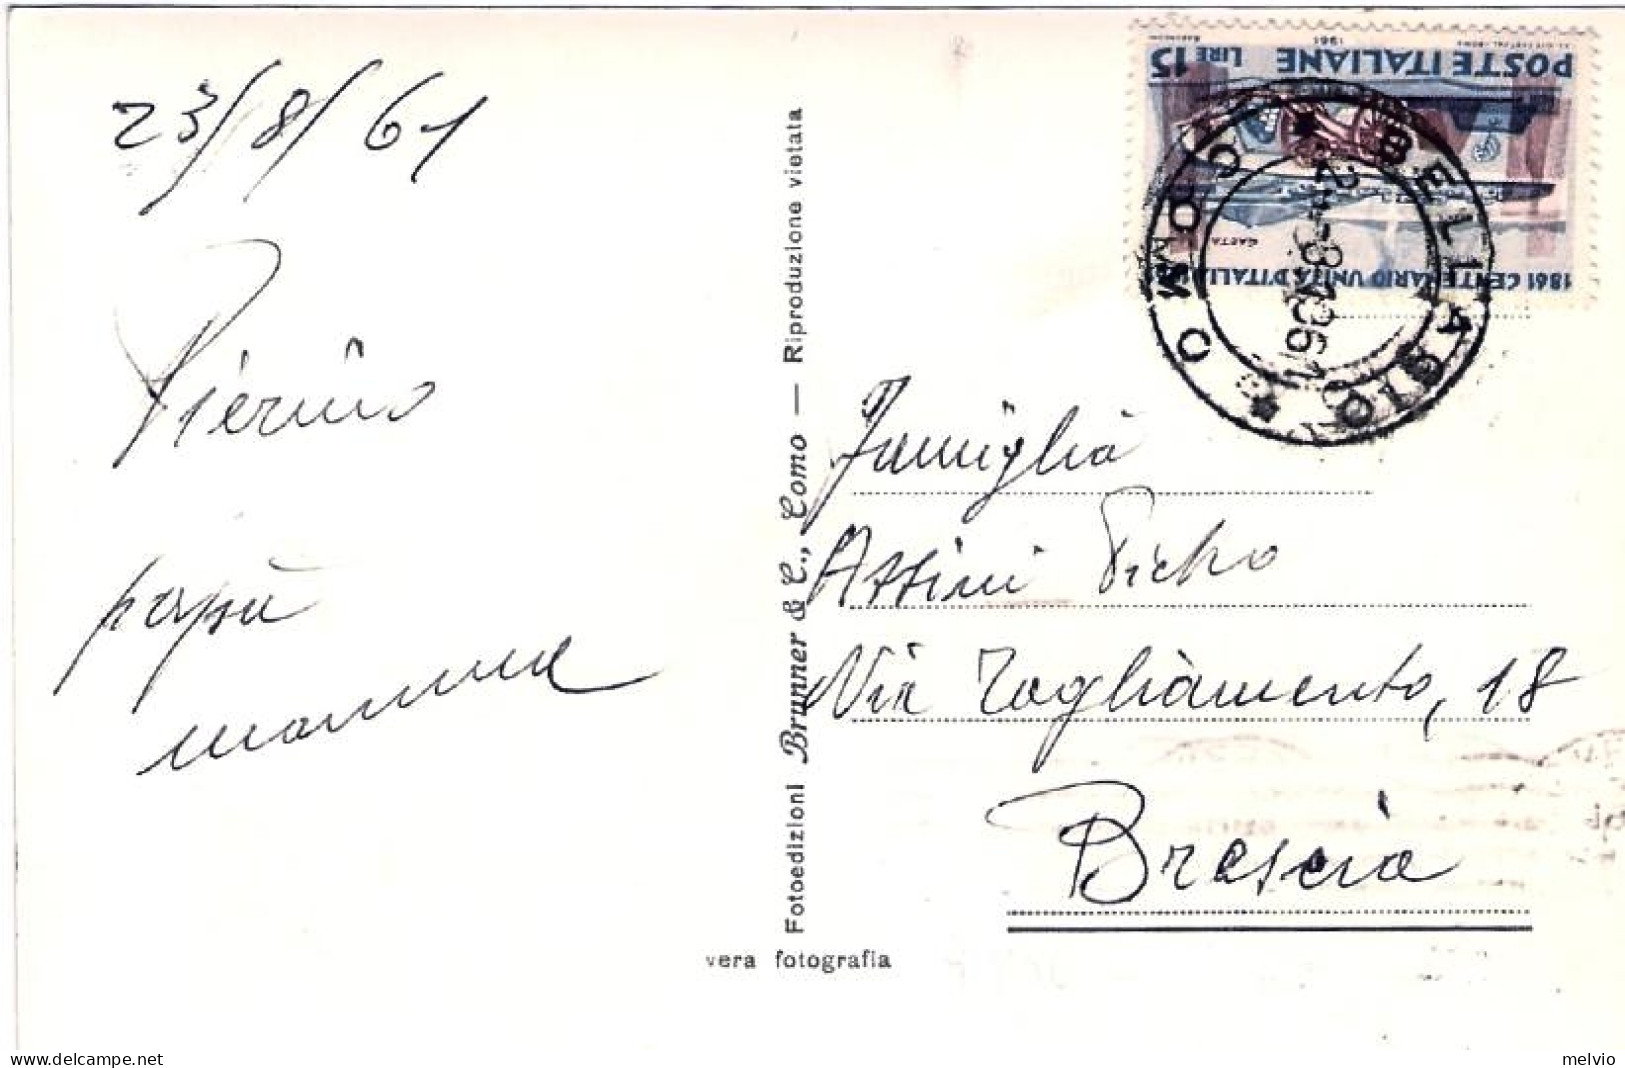 23/8/61
Pierino
papà
mamma
Fotoedizioni Brunner & C., Como — Riproduzione vietata
vera fotografia
POSTE ITALIANE LIRE 15
1961
GAETA
1861 CENTENARIO UNITÀ D'ITALIA 1961
BELLAGIO
COMO
Famiglia
Assini
Via Tagliamento, 18
Brescia
melvio
delcampe.net